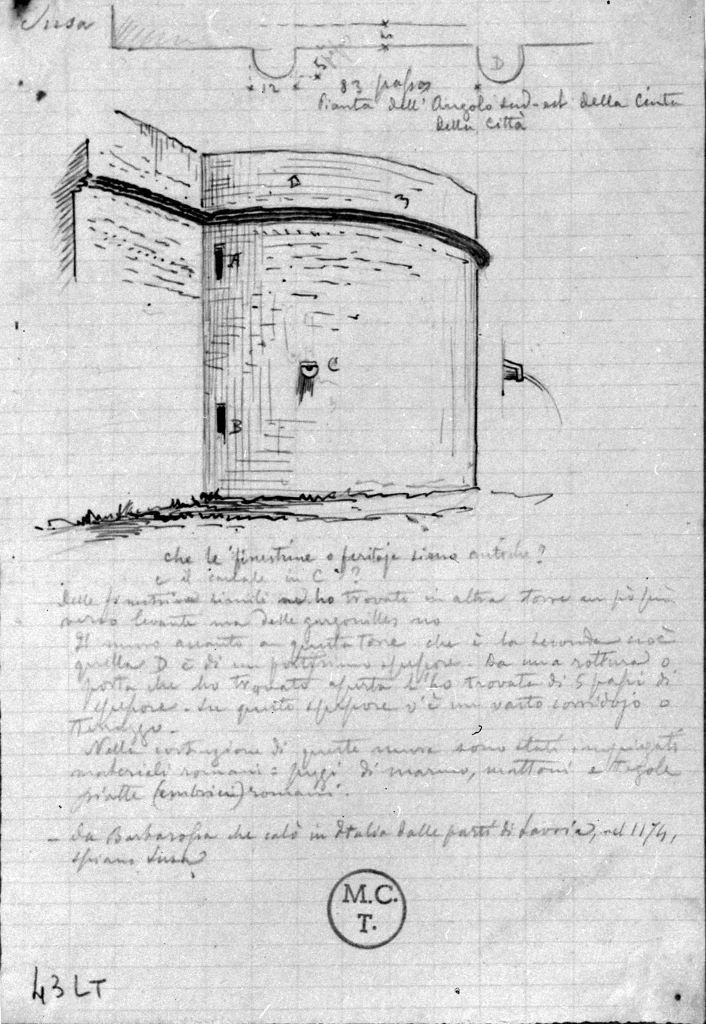 Susa
5
5
12
83 passi
D
Pianta dell'Angolo sud-est della Cinta
della Città
D
3
A
C
B
che le finestrine o feritoje siano antiche?
e il canale in C?
Delle finestrine simili ne ho trovate in altra torre un pò più
verso levante ma delle gargouilles no
Il muro accanto a questa torre che è la seconda cioè
quella D è di un fortissimo spessore. Da una rottura o
porta che ho trovato aperta l'ho trovata di 5 passi di
spessore. Su questo spessore v'è un vasto corridojo o
terrazzo.
Nella costruzione di queste mura sono stati impiegati
materiali romani = pezzi di marmo, mattoni e tegole
piatte (embrici) romani.
- Da Barbarossa che calò in Italia dalle parti di Savoia, nel 1174,
spianò Susa
M.C.
T.
43 LT